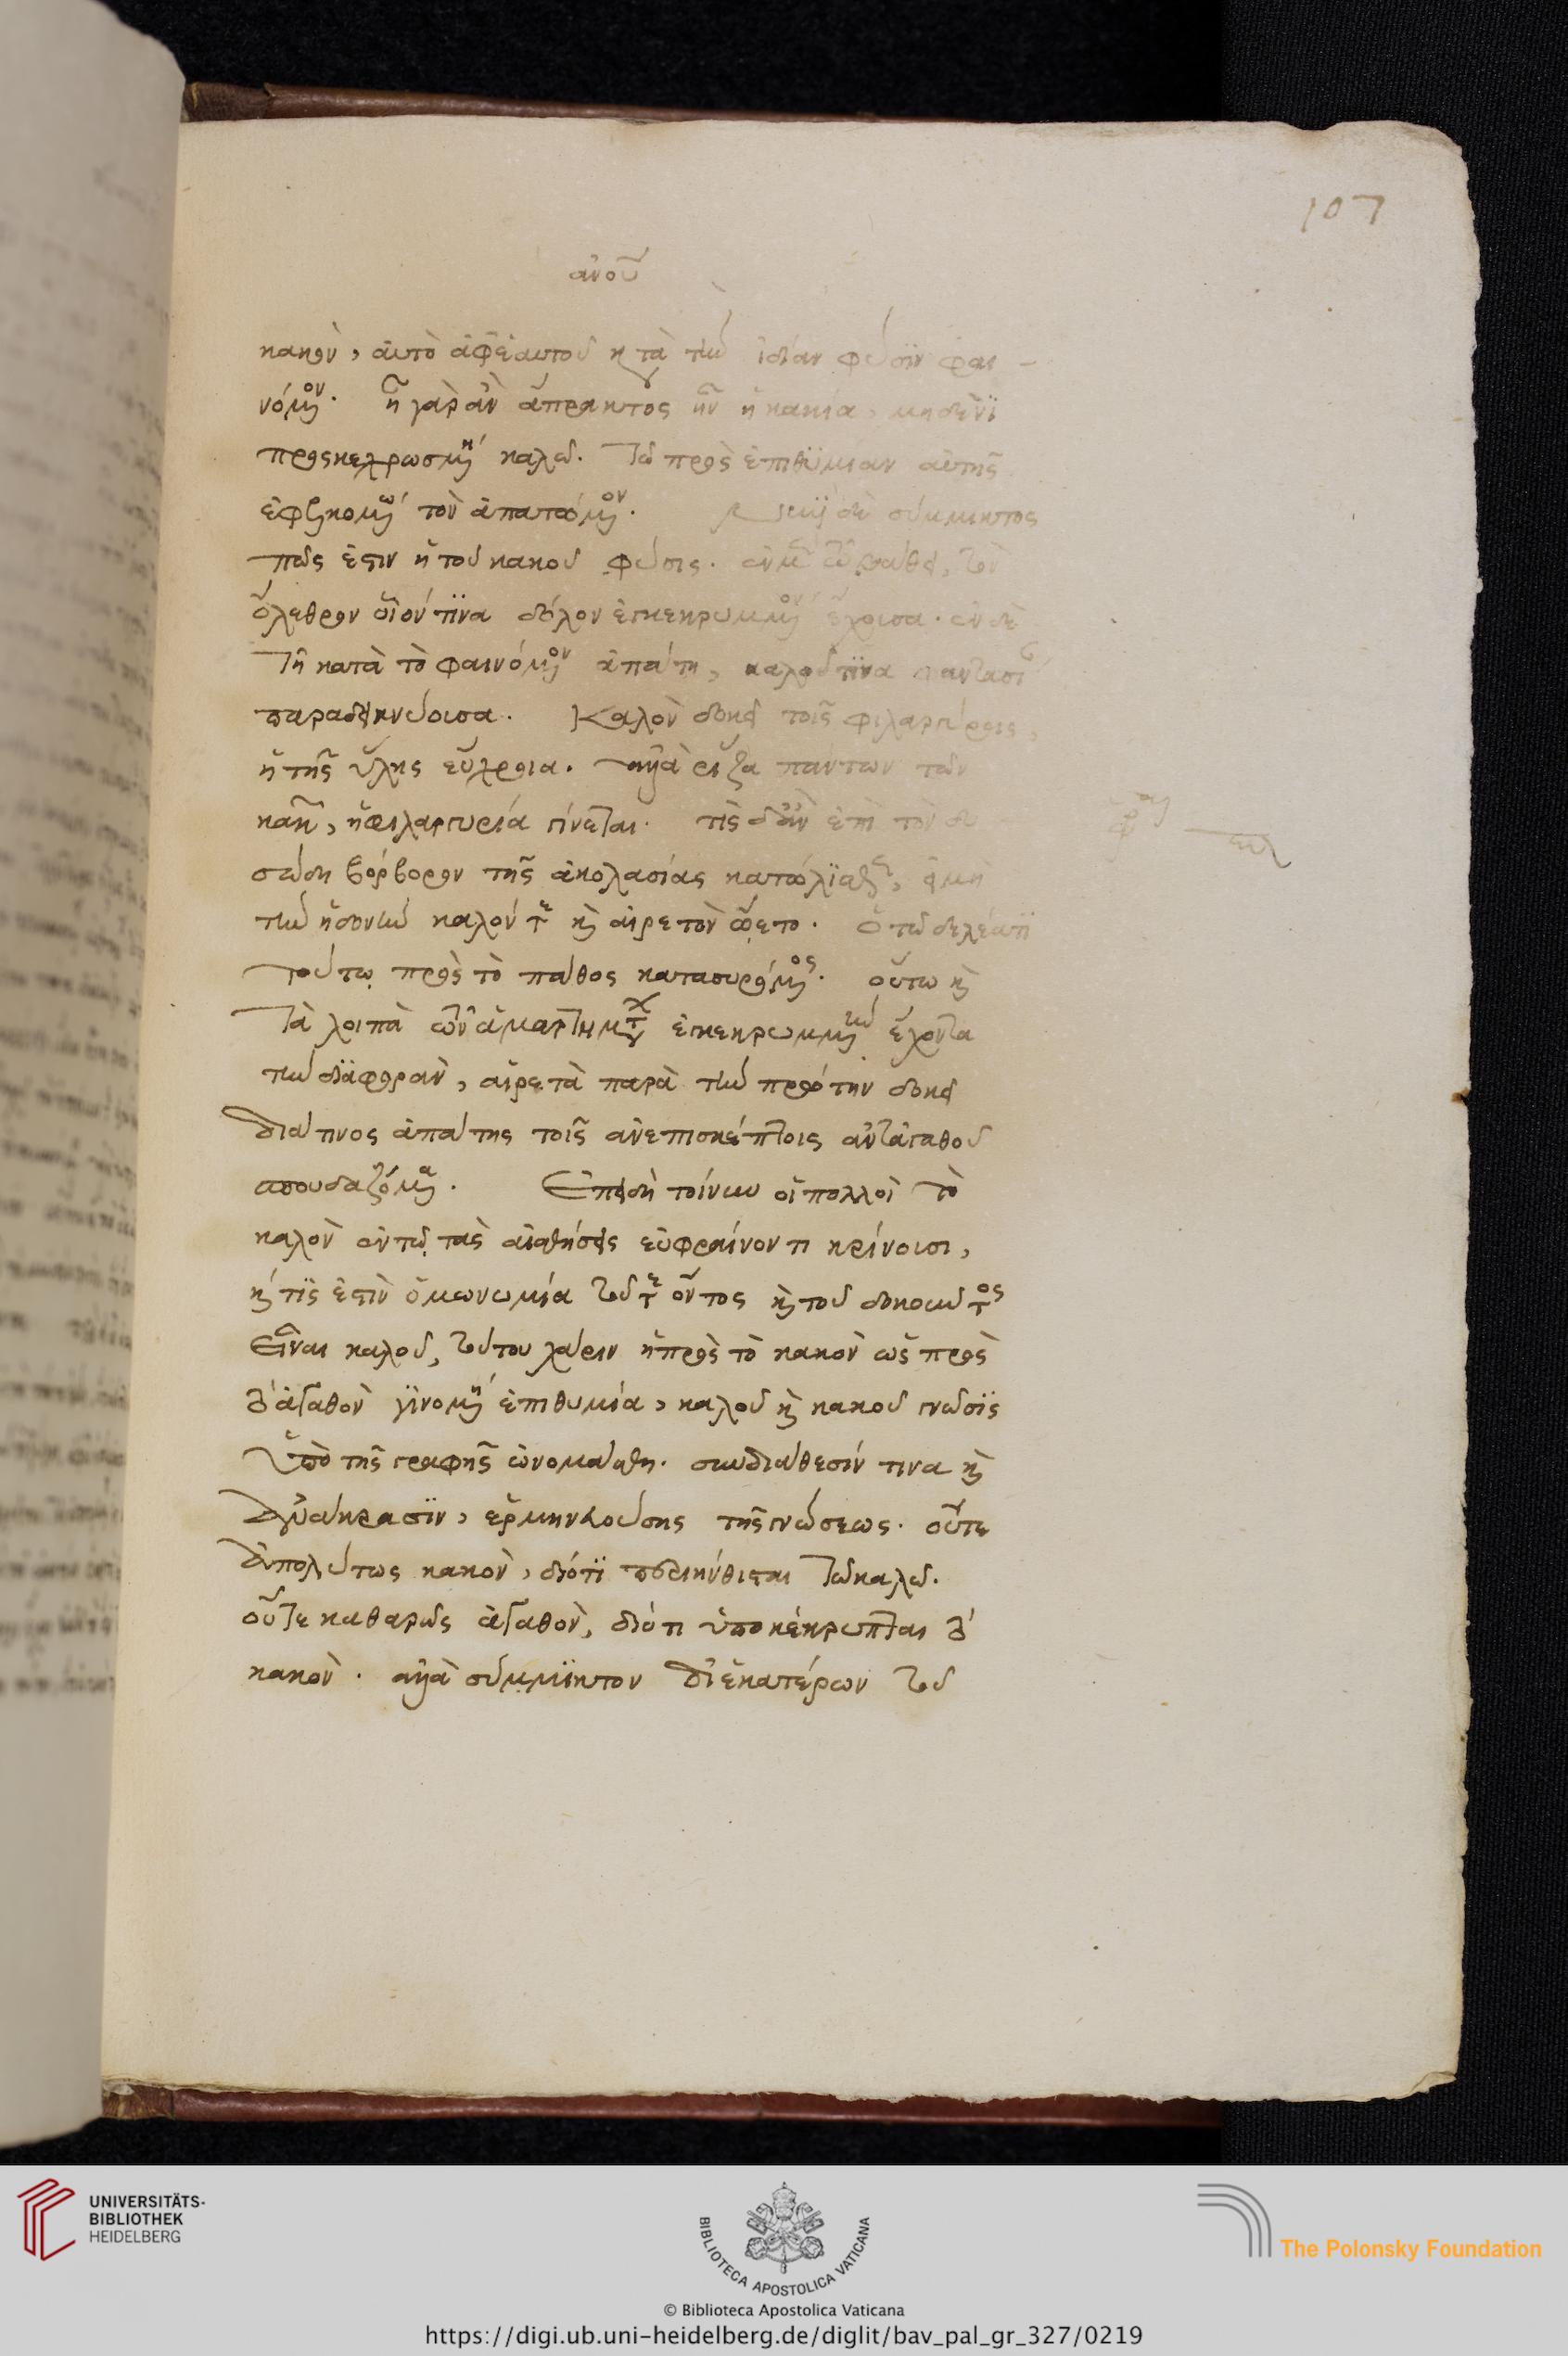 107
ἀνου
κακὸν, αὐτὸ ἀφ' ἑαυτοῦ κατὰ τὴν ἰδίαν φύσιν φαι-
νόμενον. ἦ γὰρ ἂν ἄπρακτος ἦν ἡ κακία, μηδενὶ
προσκεχρωσμένη καλῷ. τῷ πρὸς ἐπιθυμίαν αὐτῆς
ἐφελκομένῳ τὸν ἀπατώμενον. δὲ σύμμικτος
πῶς ἐστιν ἡ τοῦ κακοῦ φύσις. ἐν μὲν τῷ βάθει, τὸν
ὄλεθρον οἷόν τινα δόλον ἐγκεκρυμμένον ἔχουσα. ἐν δὲ
τῇ κατὰ τὸ φαινόμενον ἀπάτῃ, καλοῦ τινα φαντασίαν
παραδεικνύουσα. Καλὸν δοκεῖ τοῖς φιλαργύροις,
ἡ τῆς ὕλης εὔχροια. ἀλλὰ ῥίζα πάντων τῶν
κακῶν, ἡ φιλαργυρία γίνεται. τίς δ' ἂν ἐπὶ τὸν δυ
σώδη βόρβορον τῆς ἀκολασίας κατώλισθεν, εἰ μὴ
τὴν ἡδονὴν καλόν τε καὶ αἱρετὸν ᾤετο. ὁ τῷ δελέατι
τούτῳ πρὸς τὸ πάθος κατασυρόμενος. οὕτω καὶ
τὰ λοιπὰ τῶν ἁμαρτημάτων ἐγκεκρυμμένην ἔχοντα
τὴν διαφθορὰν, αἱρετὰ παρὰ τὴν πρώτην δοκεῖ
διά τινος ἀπάτης τοῖς ἀνεπισκέπτοις ἀντ' ἀγαθοῦ
σπουδαζόμενα. Ἐπειδὴ τοίνυν οἱ πολλοὶ τὸ
καλὸν ἐν τῷ τὰς αἰσθήσεις εὐφραίνοντι κρίνουσι,
καί τις ἐστὶν ὁμωνυμία τοῦ τε ὄντος καὶ τοῦ δοκοῦντος
εἶναι καλοῦ, τούτου χάριν ἡ πρὸς τὸ κακὸν ὡς πρὸς
τὸ ἀγαθὸν γινομένη ἐπιθυμία, καλοῦ καὶ κακοῦ γνῶσις
ὑπὸ τῆς γραφῆς ὠνομάσθη. συνδιάθεσίν τινα καὶ
ἀνάκρασιν, ἑρμηνευούσης τῆς γνώσεως. οὔτε
ἀπολύτως κακὸν, διότι περιήνθισται τῷ καλῷ.
οὔτε καθαρῶς ἀγαθὸν, διότι ὑποκέκρυπται τὸ
κακὸν. ἀλλὰ σύμμικτον δι' ἑκατέρων τοῦ
UNIVERSITÄTS-
BIBLIOTHEK
HEIDELBERG
BIBLIOTECA APOSTOLICA VATICANA
The Polonsky Foundation
© Biblioteca Apostolica Vaticana
https://digi.ub.uni-heidelberg.de/diglit/bav_pal_gr_327/0219